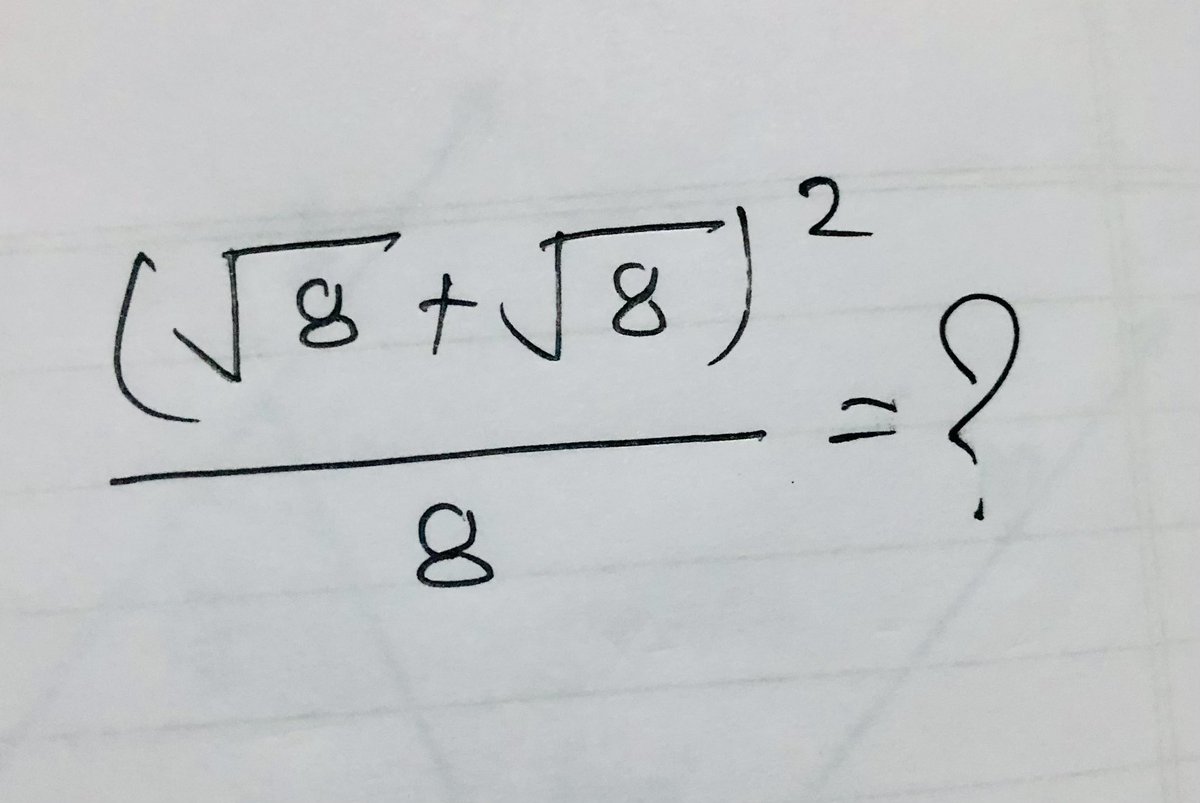 (√8 + √8)² = ?
8